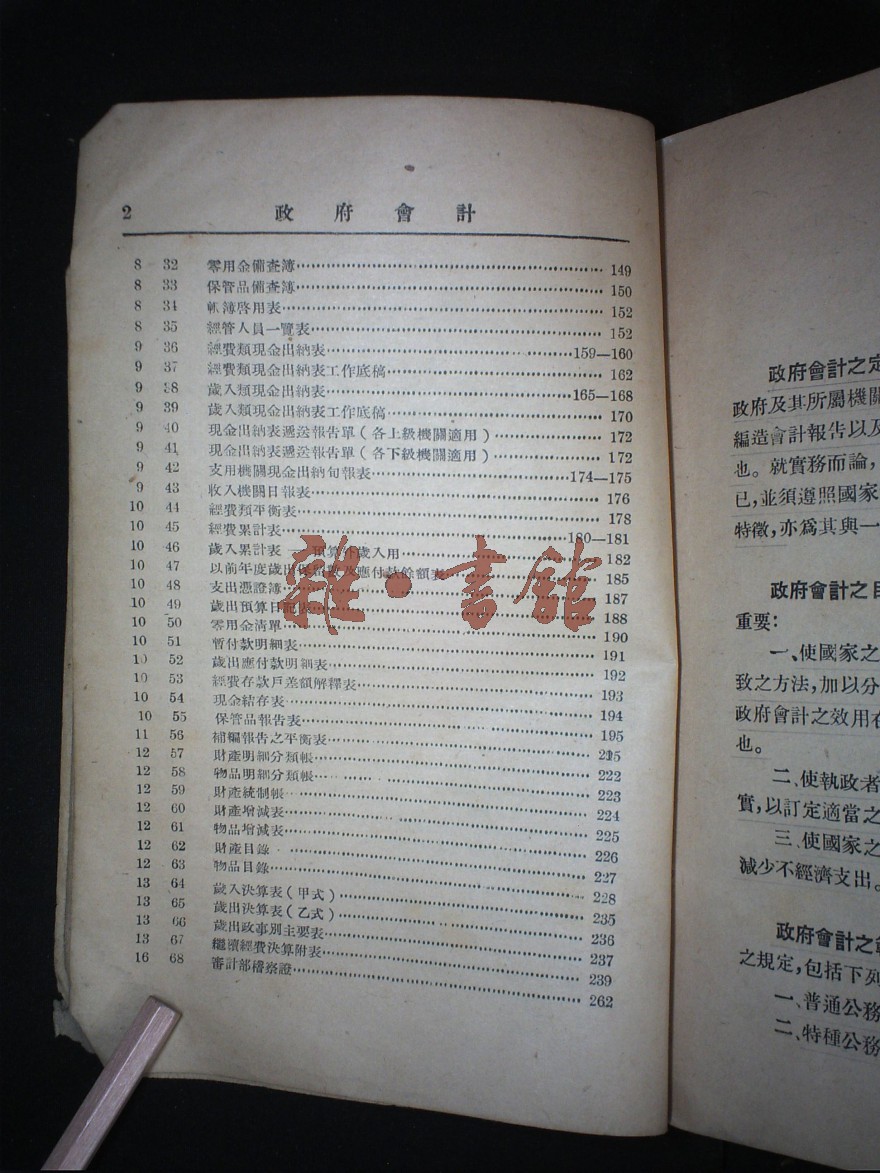 2 政府會計
8 32 零用金備查簿 149
8 33 保管品備查簿 150
8 34 帳簿啓用表 152
8 35 經管人員一覽表 152
9 36 經費類現金出納表 159—160
9 37 經費類現金出納表工作底稿 162
9 38 歲入類現金出納表 165—168
9 39 歲入類現金出納表工作底稿 170
9 40 現金出納表遞送報告單(各上級機關適用) 172
9 41 現金出納表遞送報告單(各下級機關適用) 172
9 42 支用機關現金出納旬報表 174—175
9 43 收入機關日報表 176
10 44 經費類平衡表 178
10 45 經費累計表 180—181
10 46 歲入累計表 預算外歲入用 182
10 47 以前年度歲出保留數及應付款餘額表 185
10 48 支出憑證簿 187
10 49 歲出預算日記表 188
10 50 零用金清單 190
10 51 暫付款明細表 191
10 52 歲出應付款明細表 192
10 53 經費存款戶差額解釋表 193
10 54 現金結存表 194
10 55 保管品報告表 195
11 56 補編報告之平衡表 215
12 57 財產明細分類帳 222
12 58 物品明細分類帳 223
12 59 財產統制帳 224
12 60 財產增減表 225
12 61 物品增減表 226
12 62 財產目錄 227
12 63 物品目錄 228
13 64 歲入決算表(甲式) 235
13 65 歲出決算表(乙式) 236
13 66 歲出政事別主要表 237
13 67 繼續經費決算附表 239
16 68 審計部稽察證 262
雜·書館
政府會計之定
政府及其所屬機關
編造會計報告以及
也。就實務而論,
已,並須遵照國家
特徵,亦爲其與一
政府會計之目
重要:
一、使國家之
致之方法,加以分
政府會計之效用在
也。
二、使執政者
實,以訂定適當之
三、使國家之
減少不經濟支出。
政府會計之範
之規定,包括下列
一、普通公務
二、特種公務